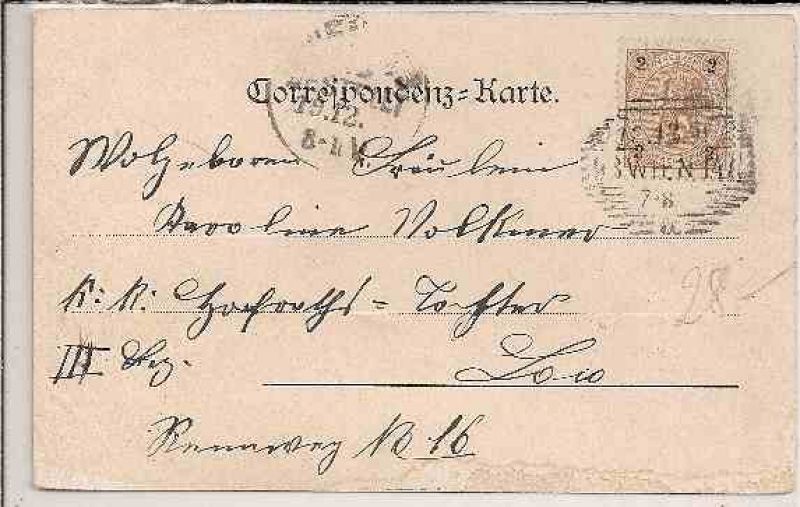 Correspondenz-Karte.
2 2
13.12.
8-11V
WIEN 1
7-8
Wolgeboren Fräulein
Karoline Volkmer
k: k: Hofraths-Tochter
28-
III Bez.
Loco
Rennweg No 16